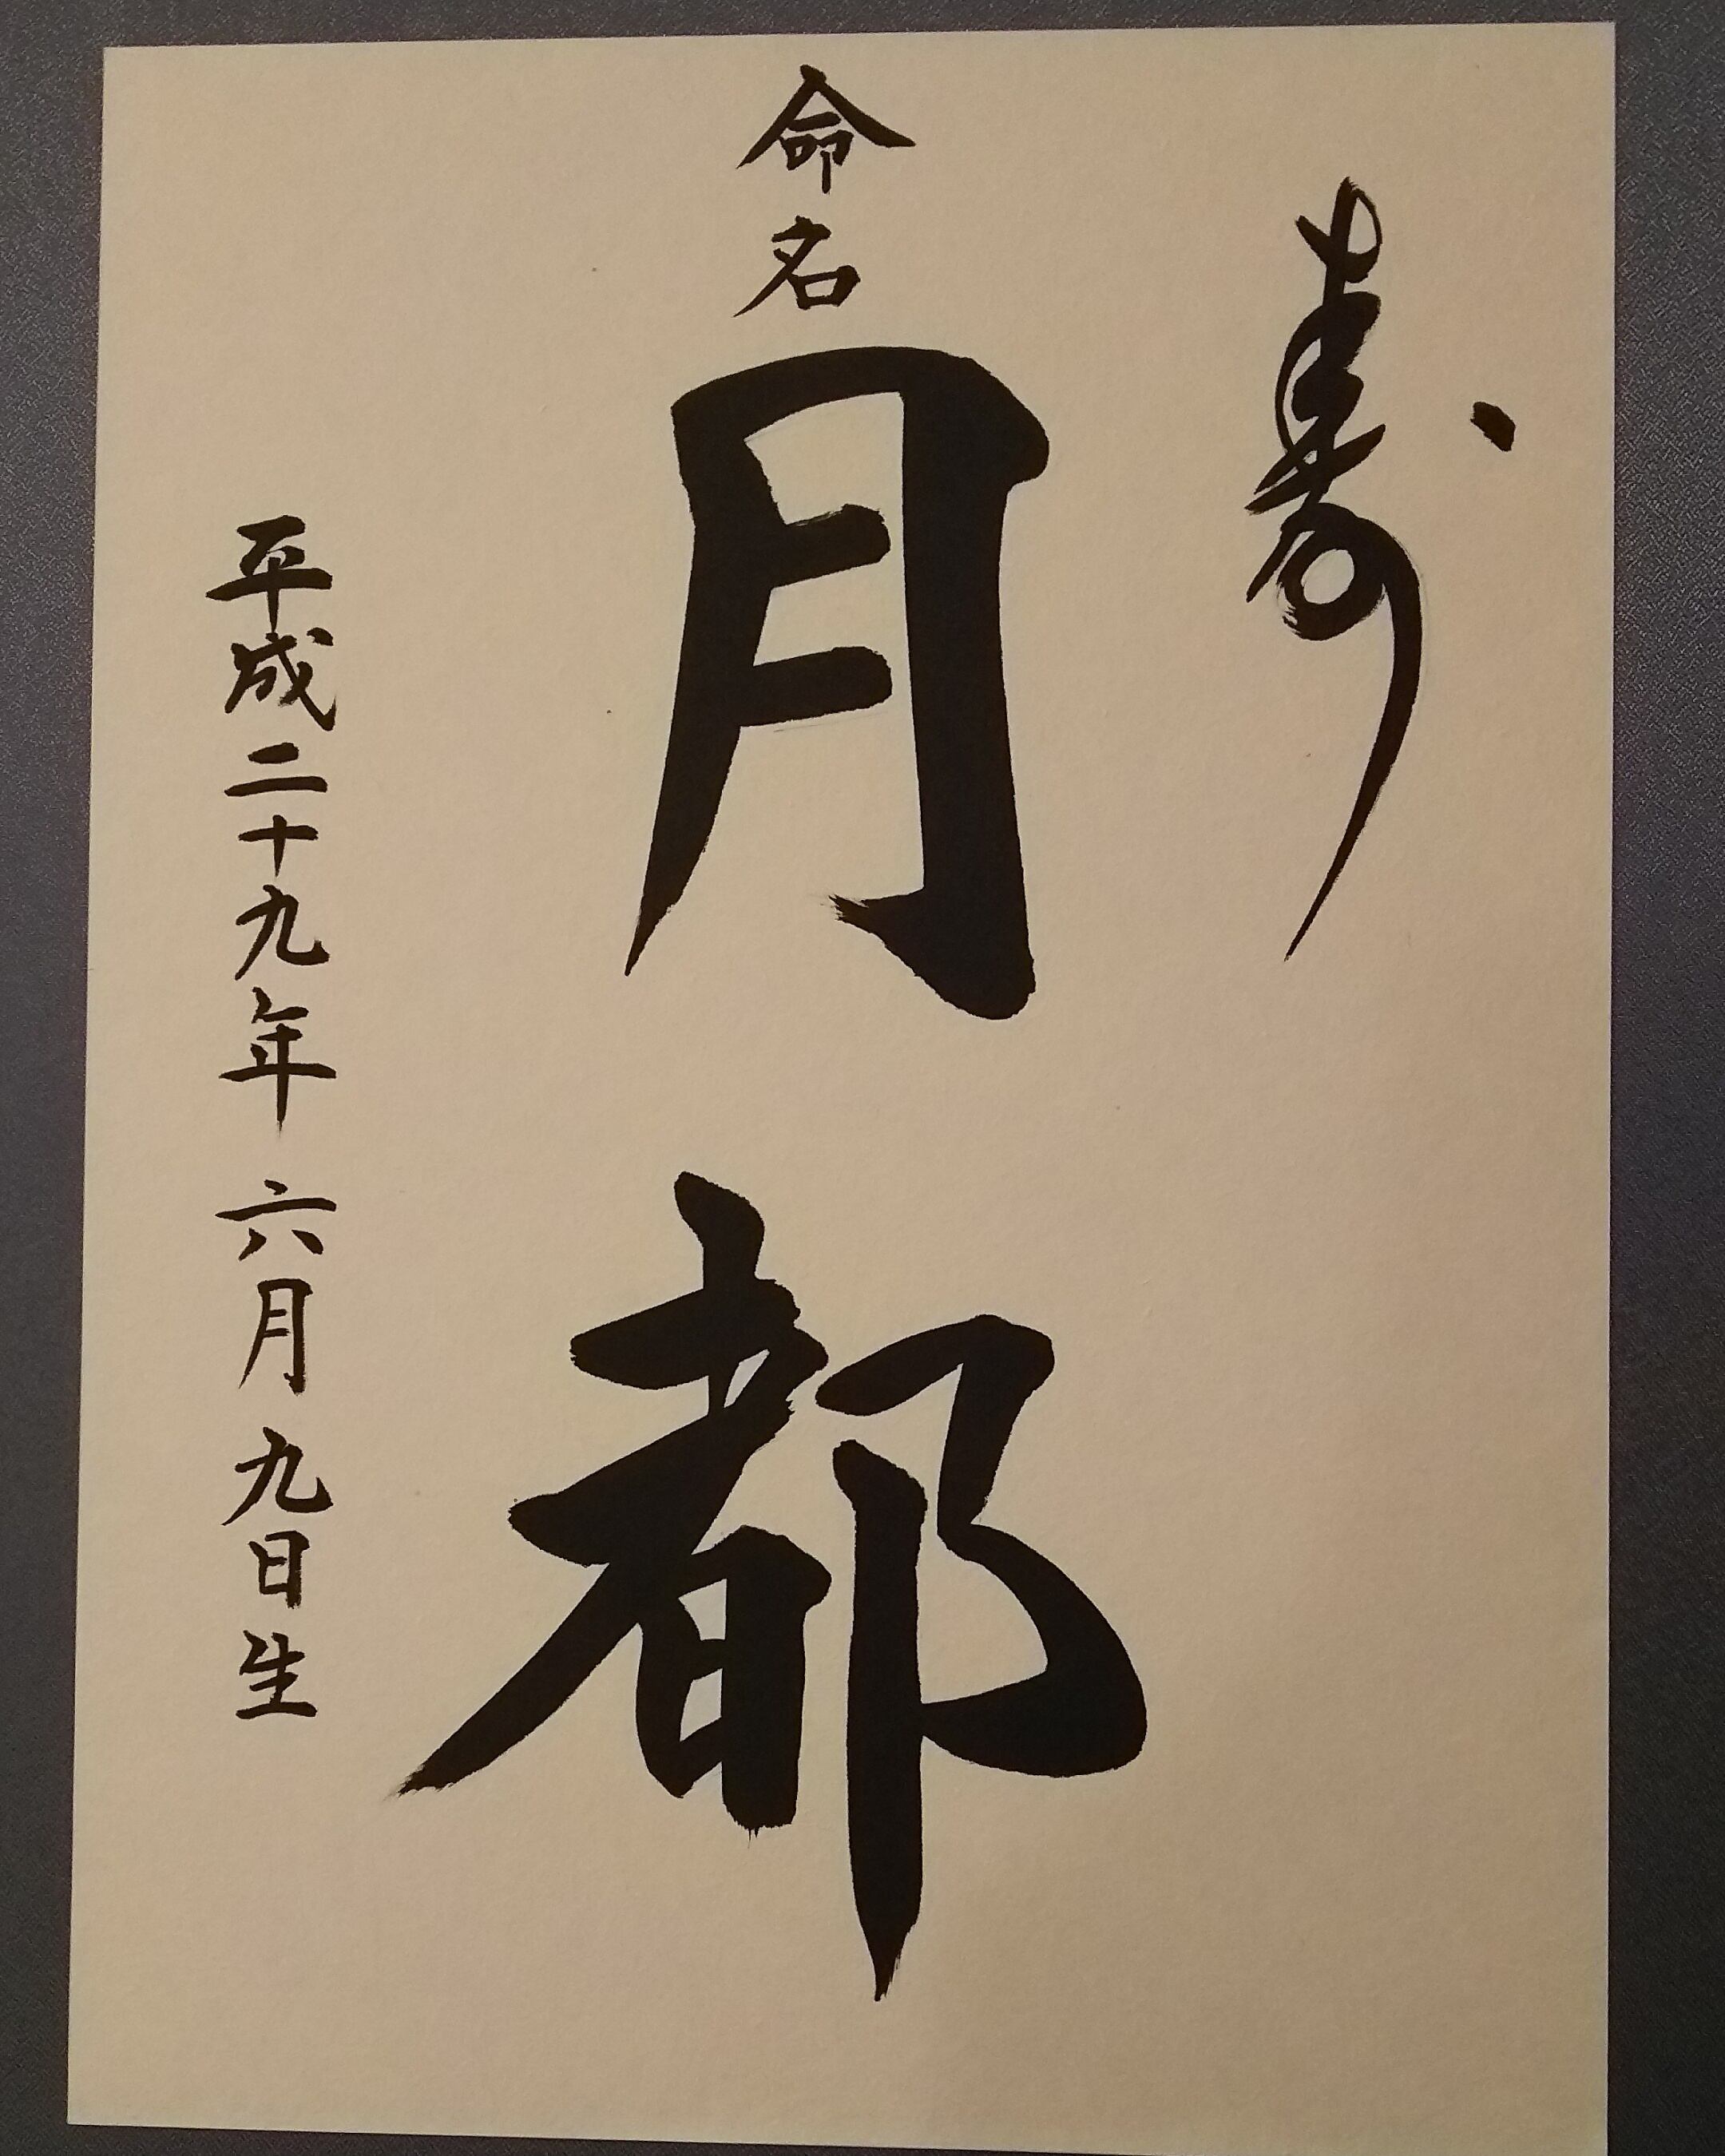 寿
命名
月都
平成二十九年六月九日生